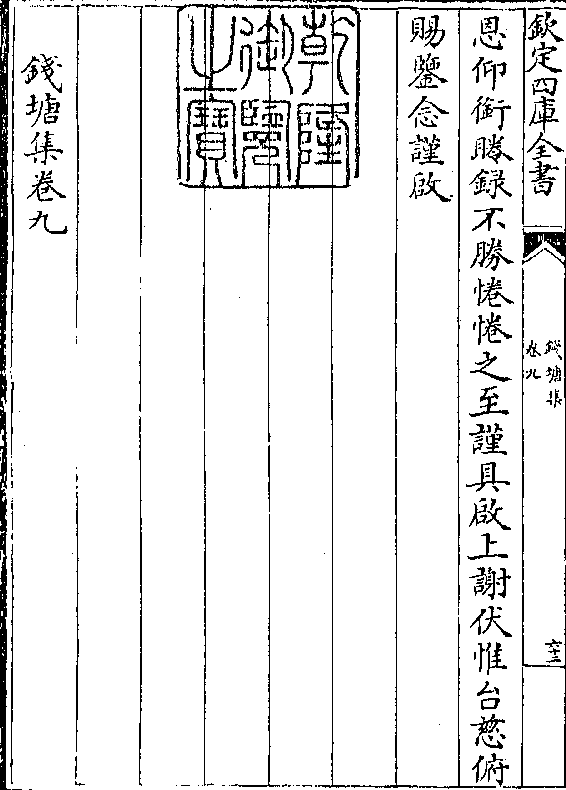 欽定四庫全書
錢塘集
卷九
六十三
恩仰銜賸録不勝惓惓之至謹具啟上謝伏惟台慈俯
賜鑒念謹啟
乾隆御覽之寶
錢塘集卷九